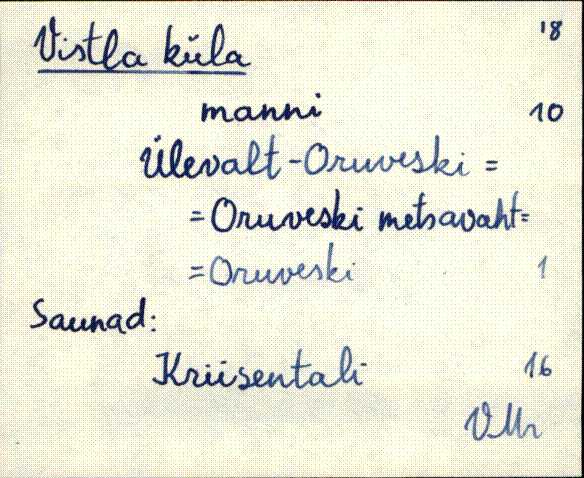 Vistla küla '8
manni 10
Ülevalt-Oruveski =
= Oruveski metsavaht=
= Oruveski 1
Saunad:
Kriisentali 16
VMr